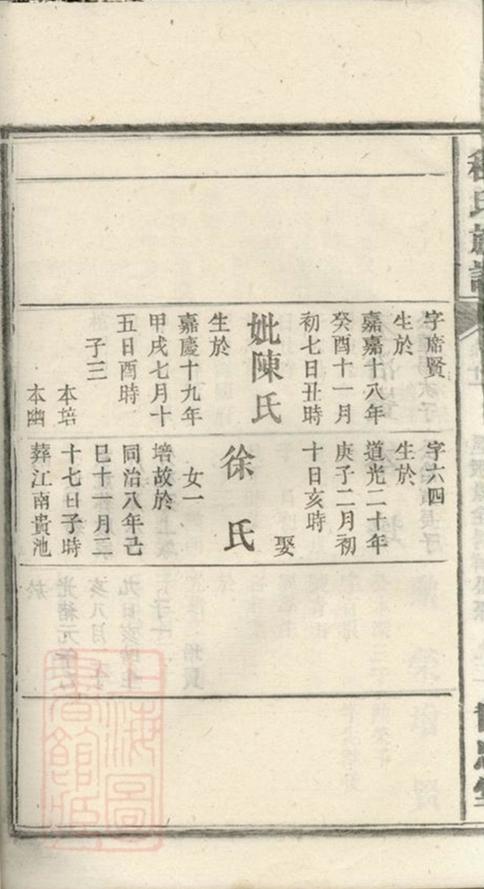 字席賢
生於
嘉嘉十八年
癸酉十一月
初七日丑時
妣陳氏
生於
嘉慶十九年
甲戌七月十
五日酉時
子三
本培
本幽
字六四
生於
道光二十年
庚子二月初
十日亥時
娶
徐氏
女一
培故於
同治八年己
巳十一月二
十七日子時
葬江南貴池